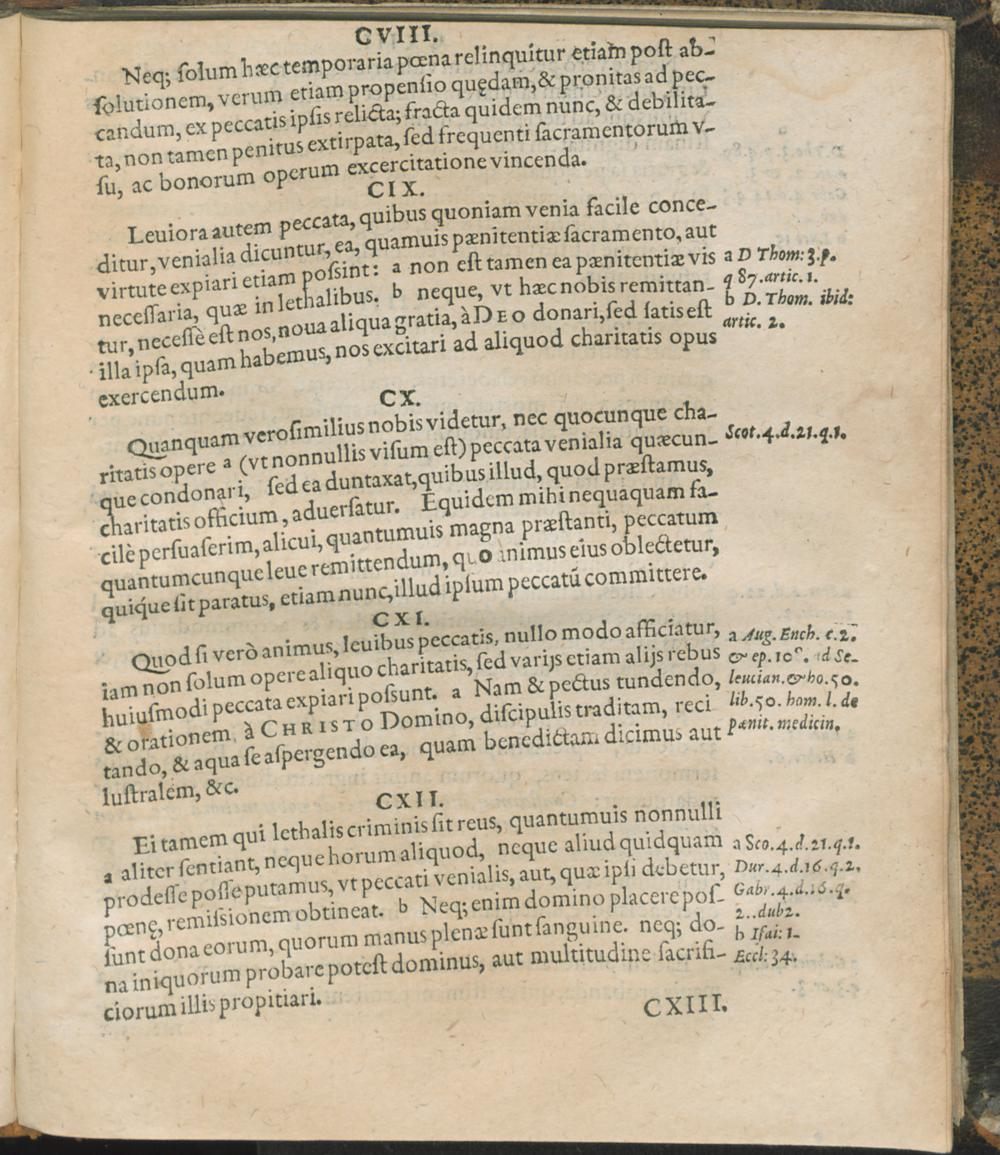 CVIII.
Neq; ſolum hæc temporaria pœna relinquitur etiam poſt ab-
ſolutionem, verum etiam propenſio quędam, & pronitas ad pec-
candum, ex peccatis ipſis relicta; fracta quidem nunc, & debilita-
ta, non tamen penitus extirpata, ſed frequenti ſacramentorum v-
ſu, ac bonorum operum excercitatione vincenda.
CIX.
Leuiora autem peccata, quibus quoniam venia facile conce-
ditur, venialia dicuntur, ea, quamuis pænitentiæ ſacramento, aut
virtute expiari etiam poſsint: a non eſt tamen ea pænitentiæ vis
neceſſaria, quæ in lethalibus. b neque, vt hæc nobis remittan-
tur, neceſſè eſt nos, noua aliqua gratia, à DEO donari, ſed ſatis eſt
illa ipſa, quam habemus, nos excitari ad aliquod charitatis opus
exercendum.
a D Thom: 3. p.
q 87. artic. 1.
b D. Thom. ibid:
artic. 2.
CX.
Quanquam veroſimilius nobis videtur, nec quocunque cha-
ritatis opere a (vt nonnullis viſum eſt) peccata venialia quæcun-
que condonari, ſed ea duntaxat, quibus illud, quod præſtamus,
charitatis officium, aduerſatur. Equidem mihi nequaquam fa-
cilè perſuaſerim, alicui, quantumuis magna præſtanti, peccatum
quantumcunque leue remittendum, quo animus eius oblectetur,
quiq́ue ſit paratus, etiam nunc, illud ipſum peccatū committere.
Scot. 4. d. 21. q. 1.
CXI.
Quod ſi verò animus, leuibus peccatis, nullo modo afficiatur,
iam non ſolum opere aliquo charitatis, ſed varijs etiam alijs rebus
huiuſmodi peccata expiari poſſunt. a Nam & pectus tundendo,
& orationem, à CHRISTO Domino, diſcipulis traditam, reci
tando, & aqua ſe aſpergendo ea, quam benedictam dicimus aut
luſtralem, &c.
a Aug. Ench. c. 2.
& ep. ad Se-
leucian. & ho. 50.
lib. 50. hom. l. de
pænit. medicin.
CXII.
Ei tamem qui lethalis criminis ſit reus, quantumuis nonnulli
a aliter ſentiant, neque horum aliquod, neque aliud quidquam
prodeſſe poſſe putamus, vt peccati venialis, aut, quæ ipſi debetur,
pœnę, remiſsionem obtineat. b Neq; enim domino placere poſ-
ſunt dona eorum, quorum manus plenæ ſunt ſanguine. neq; do-
na iniquorum probare poteſt dominus, aut multitudine ſacrifi-
ciorum illis propitiari.
a Sco. 4. d. 21. q. 1.
Dur. 4. d. 16. q. 2.
Gabr. 4. d. 16. q.
2.. dub 2.
b Iſai: 1.
Eccl: 34.
CXIII.